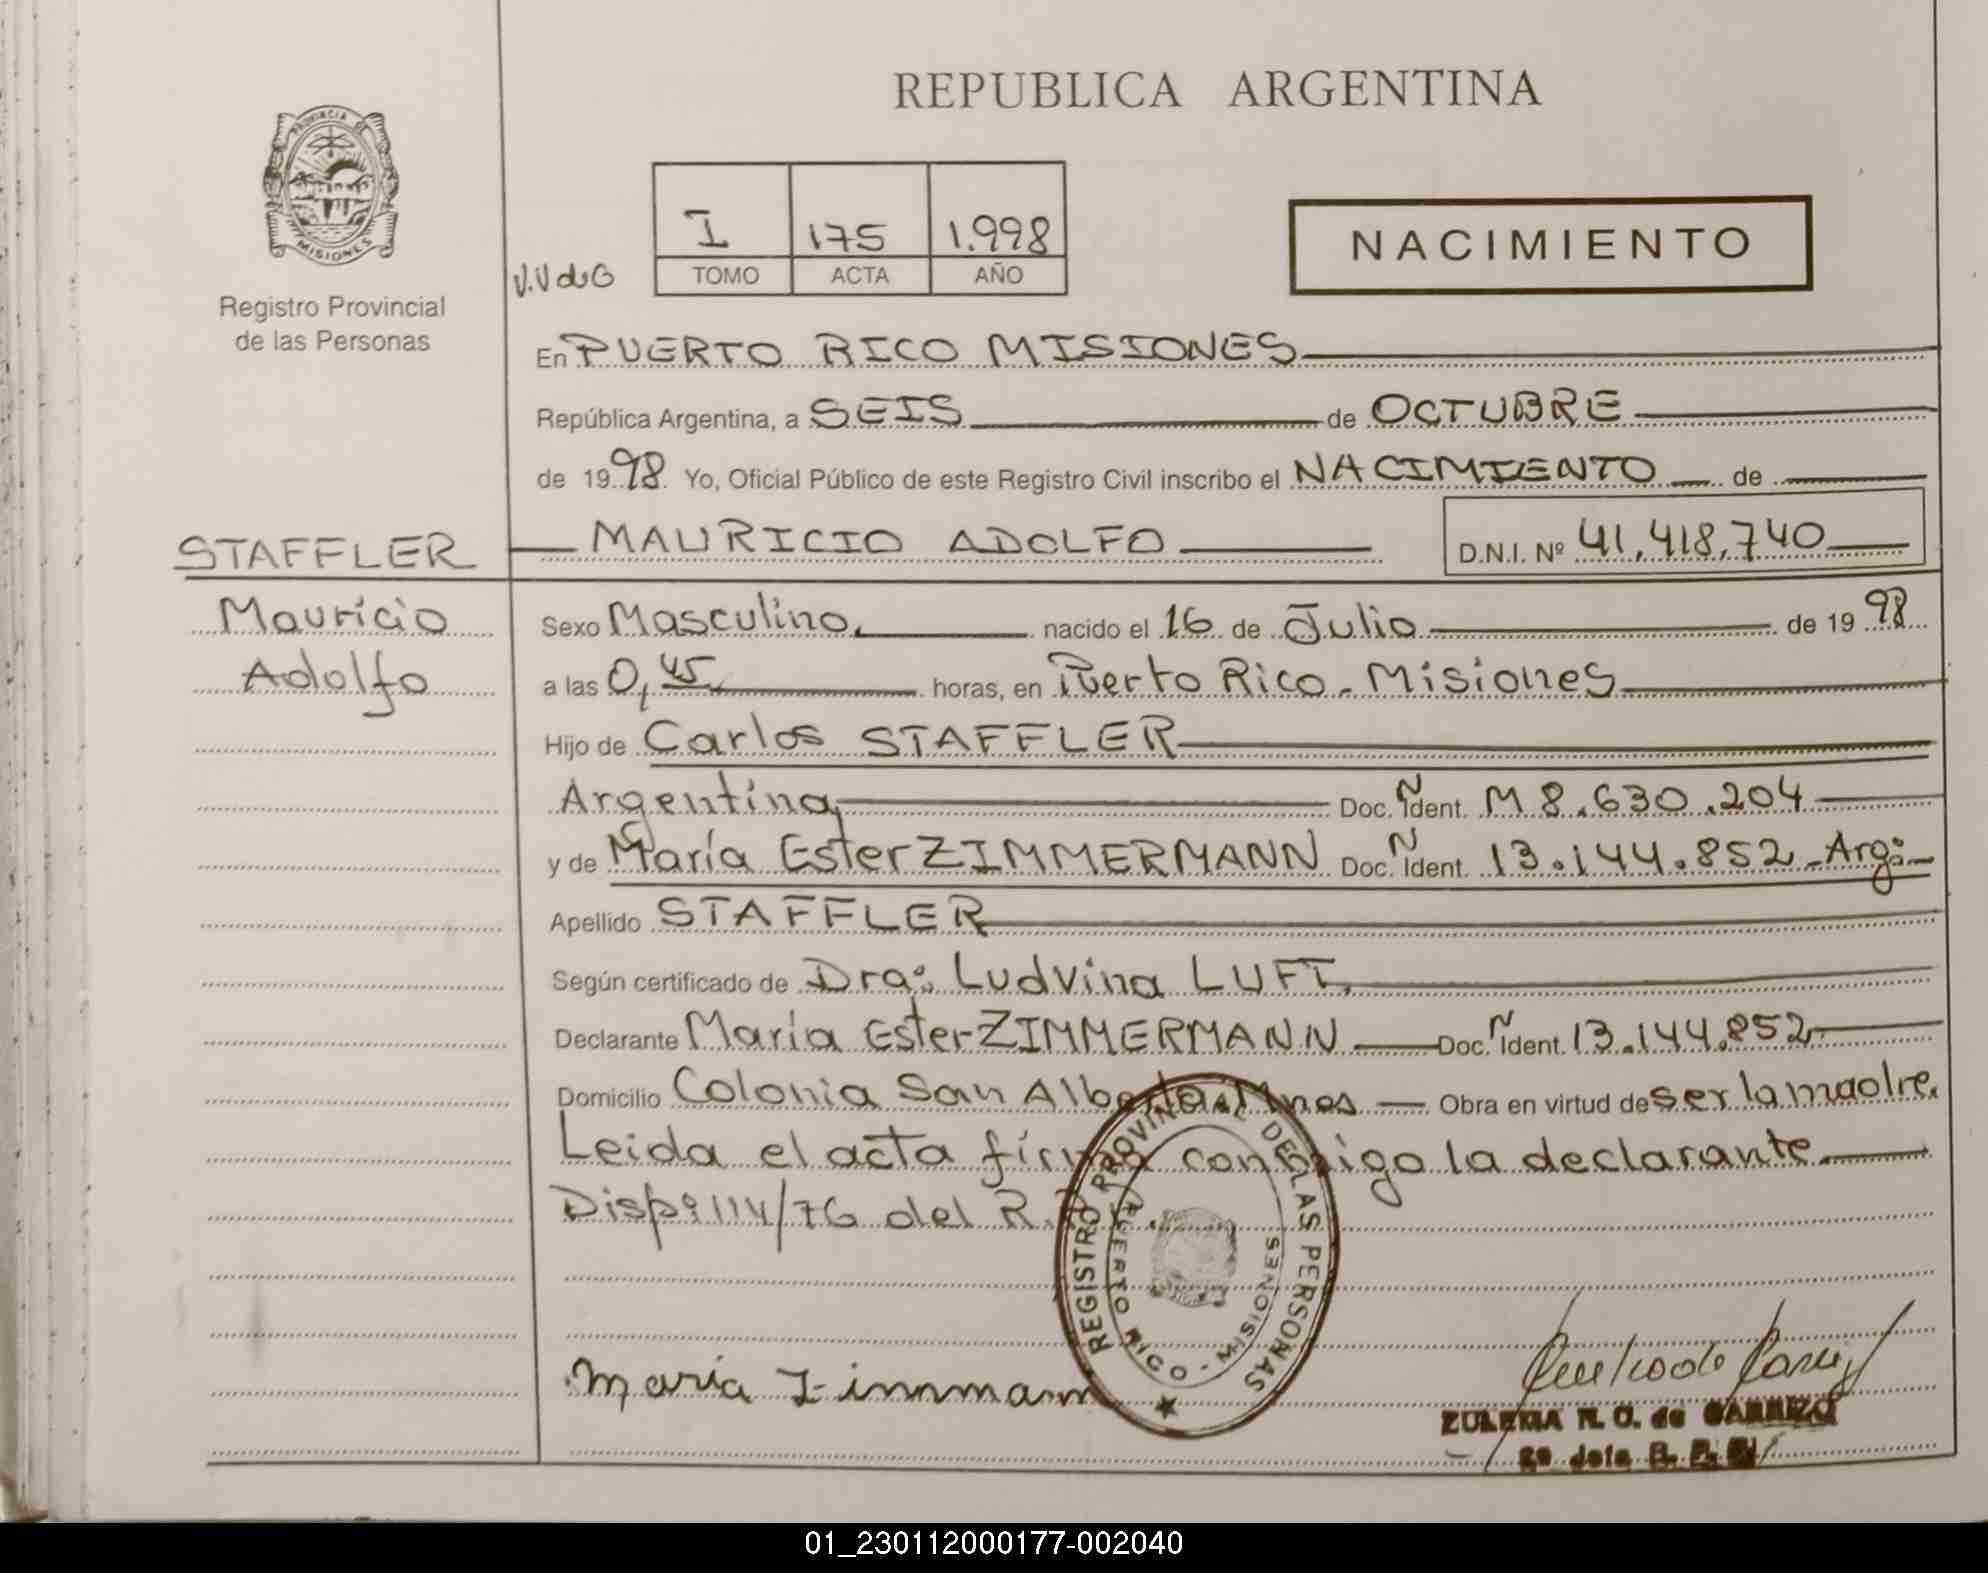 REPUBLICA ARGENTINA
PROVINCIA DE
MISIONES
Registro Provincial
de las Personas
I 175 1.998
TOMO ACTA AÑO
NACIMIENTO
En PUERTO RICO MISIONES
República Argentina, a SEIS de OCTUBRE
de 1998 Yo, Oficial Público de este Registro Civil inscribo el NACIMIENTO de
STAFFLER MAURICIO ADOLFO D.N.I. Nº 41.418.740
Mauricio
Adolfo
Sexo Masculino. nacido el 16 de Julio de 1998
a las 0,45 horas, en Puerto Rico - Misiones
Hijo de Carlos STAFFLER
Argentina Doc. N Ident. M 8.630.204
y de María Ester ZIMMERMANN Doc. N Ident. 13.144.852 - Arg:
Apellido STAFFLER
Según certificado de Dra: Ludvina LUFT.
Declarante María Ester ZIMMERMANN Doc. N Ident. 13.144.852
Domicilio Colonia San Alberto Mnes Obra en virtud de ser la madre.
Leida el acta firma conmigo la declarante
Disp: 114/76 del R.
REGISTRO PROVINCIAL DE LAS PERSONAS
PUERTO RICO - MISIONES
maria
ZULEMA N. O. de
2º Jefe R. P.
01_230112000177-002040